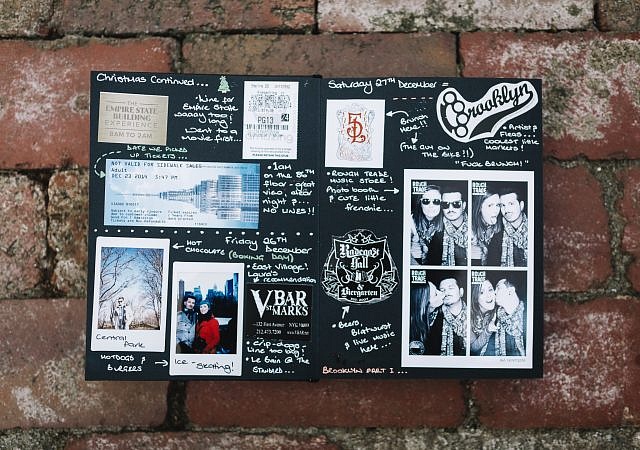 Christmas Continued...
THE
EMPIRE STATE
BUILDING
EXPERIENCE
8AM TO 2AM
• Line for
Empire State
waaay too
long!
Went to a
movie first...
PG13
DATE WE PICKED
UP TICKETS...
NOT VALID FOR SIDEWALK SALES
Adult
DEC 23 2014 5:47 PM
• 1am
on the 86th
floor - great
view, clear
night &...
NO LINES!!
HOT
CHOCOLATE
Friday 26th
December
(BOXING DAY)
• East Village!
Laura's
recommendation
V BAR
ST MARKS
132 First Avenue NYC 10009
212.473.7200
Central
Park
HOTDOGS &
BURGERS
Ice - skating!
Line too long!
• Le Bain @ The
STANDARD...
Saturday 27th December =
Brooklyn
BRUNCH
HERE!!
(THE GUY ON
THE BIKE!!)
• Artists &
Fleas...
Coolest little
markets!
"FUCK BRUNCH!"
• ROUGH TRADE,
MUSIC STORE!
Photo booth
& CUTE little
frenchie...
ROUGH
TRADE
ROUGH
TRADE
ROUGH
TRADE
ROUGH
TRADE
Radegast
Hall
&
Biergarten
• Beers,
Bratwurst
& live music
here...
BROOKLYN PART I...